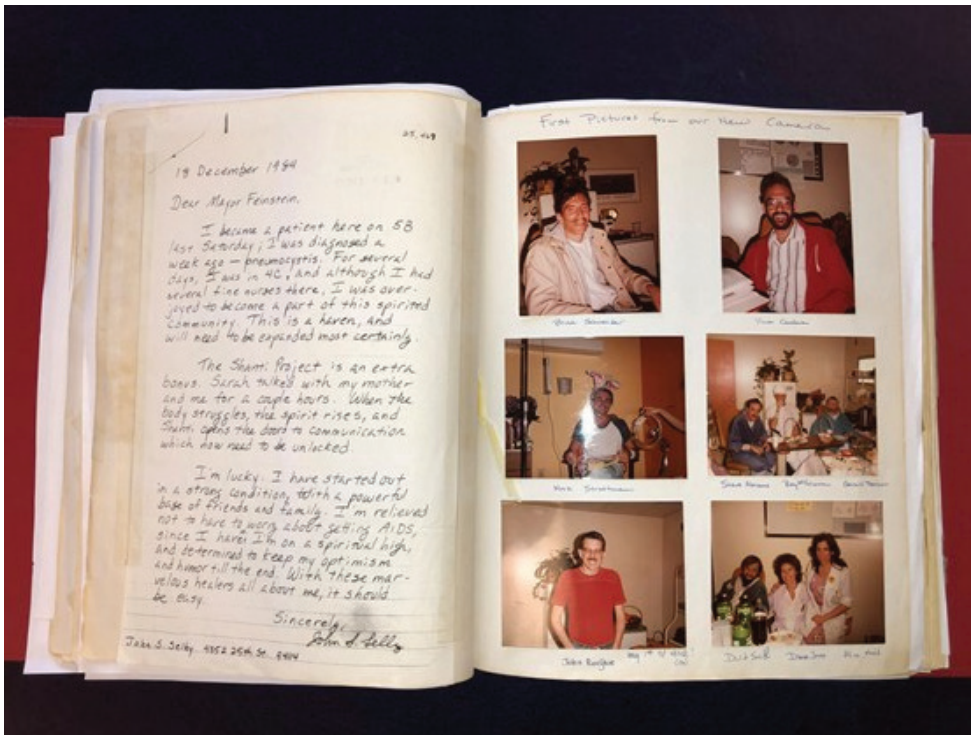 25,469
18 December 1984
Dear Mayor Feinstein,
I became a patient here on 5B
last Saturday; I was diagnosed a
week ago — pneumocystis. For several
days, I was in 4C, and although I had
several fine nurses there, I was over-
joyed to become a part of this spirited
community. This is a haven, and
will need to be expanded most certainly.
The Shanti Project is an extra
bonus. Sarah talked with my mother
and me for a couple hours. When the
body struggles, the spirit rises, and
Shanti opens the doors to communication
which now need to be unlocked.
I'm lucky. I have started out
in a strong condition, with a powerful
base of friends and family. I'm relieved
not to have to worry about getting AIDS,
since I have! I'm on a spiritual high,
and determined to keep my optimism
and humor till the end. With these mar-
velous healers all about me, it should
be easy.
Sincerely,
John S. Selby
John S. Selby 4352 25th St.
First Pictures from our New Camera
Mark
Steve
John